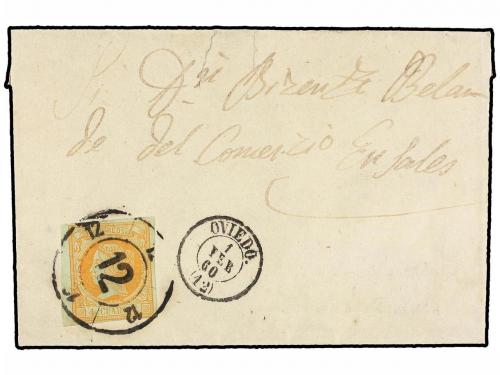 Sr Dn Bizente Belaun
de del Comercio En Sales
12
12
12
12
12
OVIEDO.
1
FEB
60
(12)